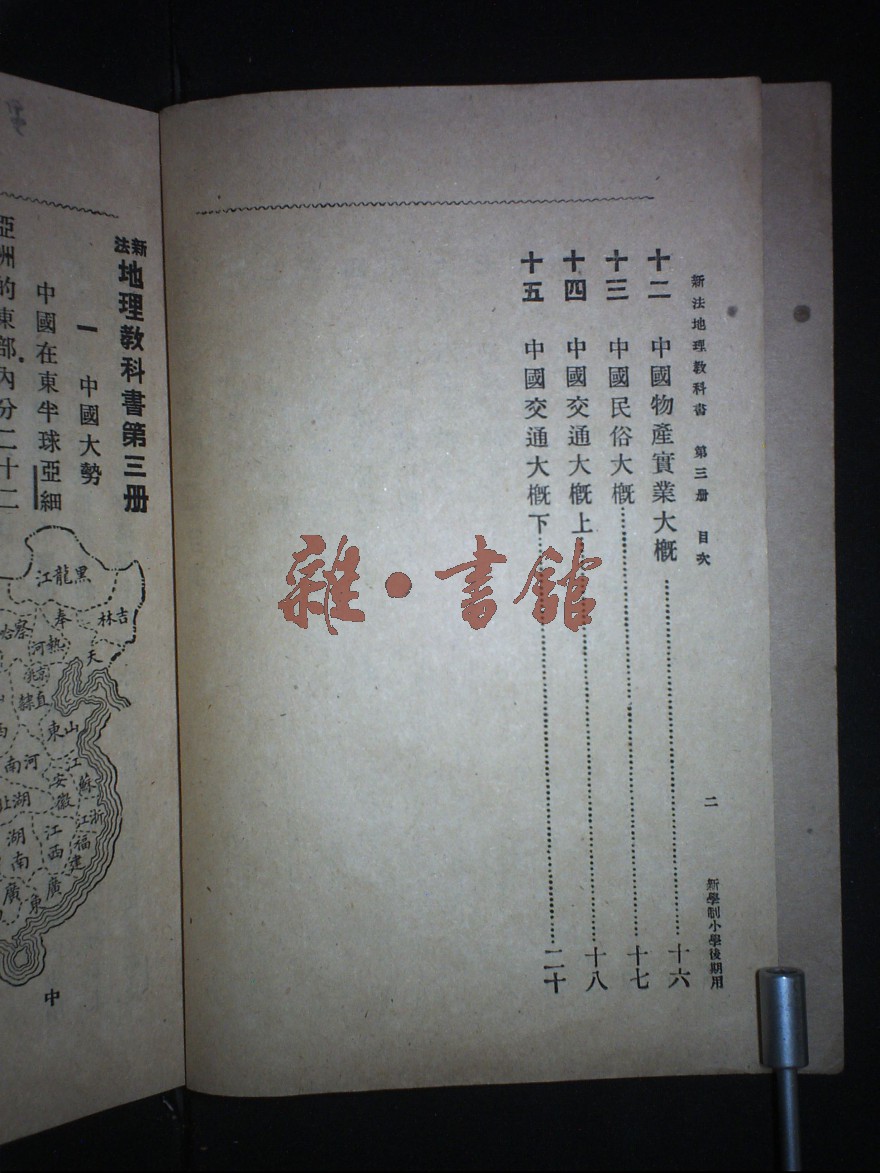 新法地理教科書 第三册 目次
二
新學制小學後期用
十二 中國物產實業大概……十六
十三 中國民俗大概……十七
十四 中國交通大概上……十八
十五 中國交通大概下……二十
雜·書館
新法地理教科書第三册
一 中國大勢
中國在東半球亞細
亞洲的東部內分二十二
黑龍江
吉林
奉
天
熱河
察哈
京兆
直隸
山東
河南
江蘇
安徽
湖北
浙江
湖南
江西
福建
廣東
廣
中